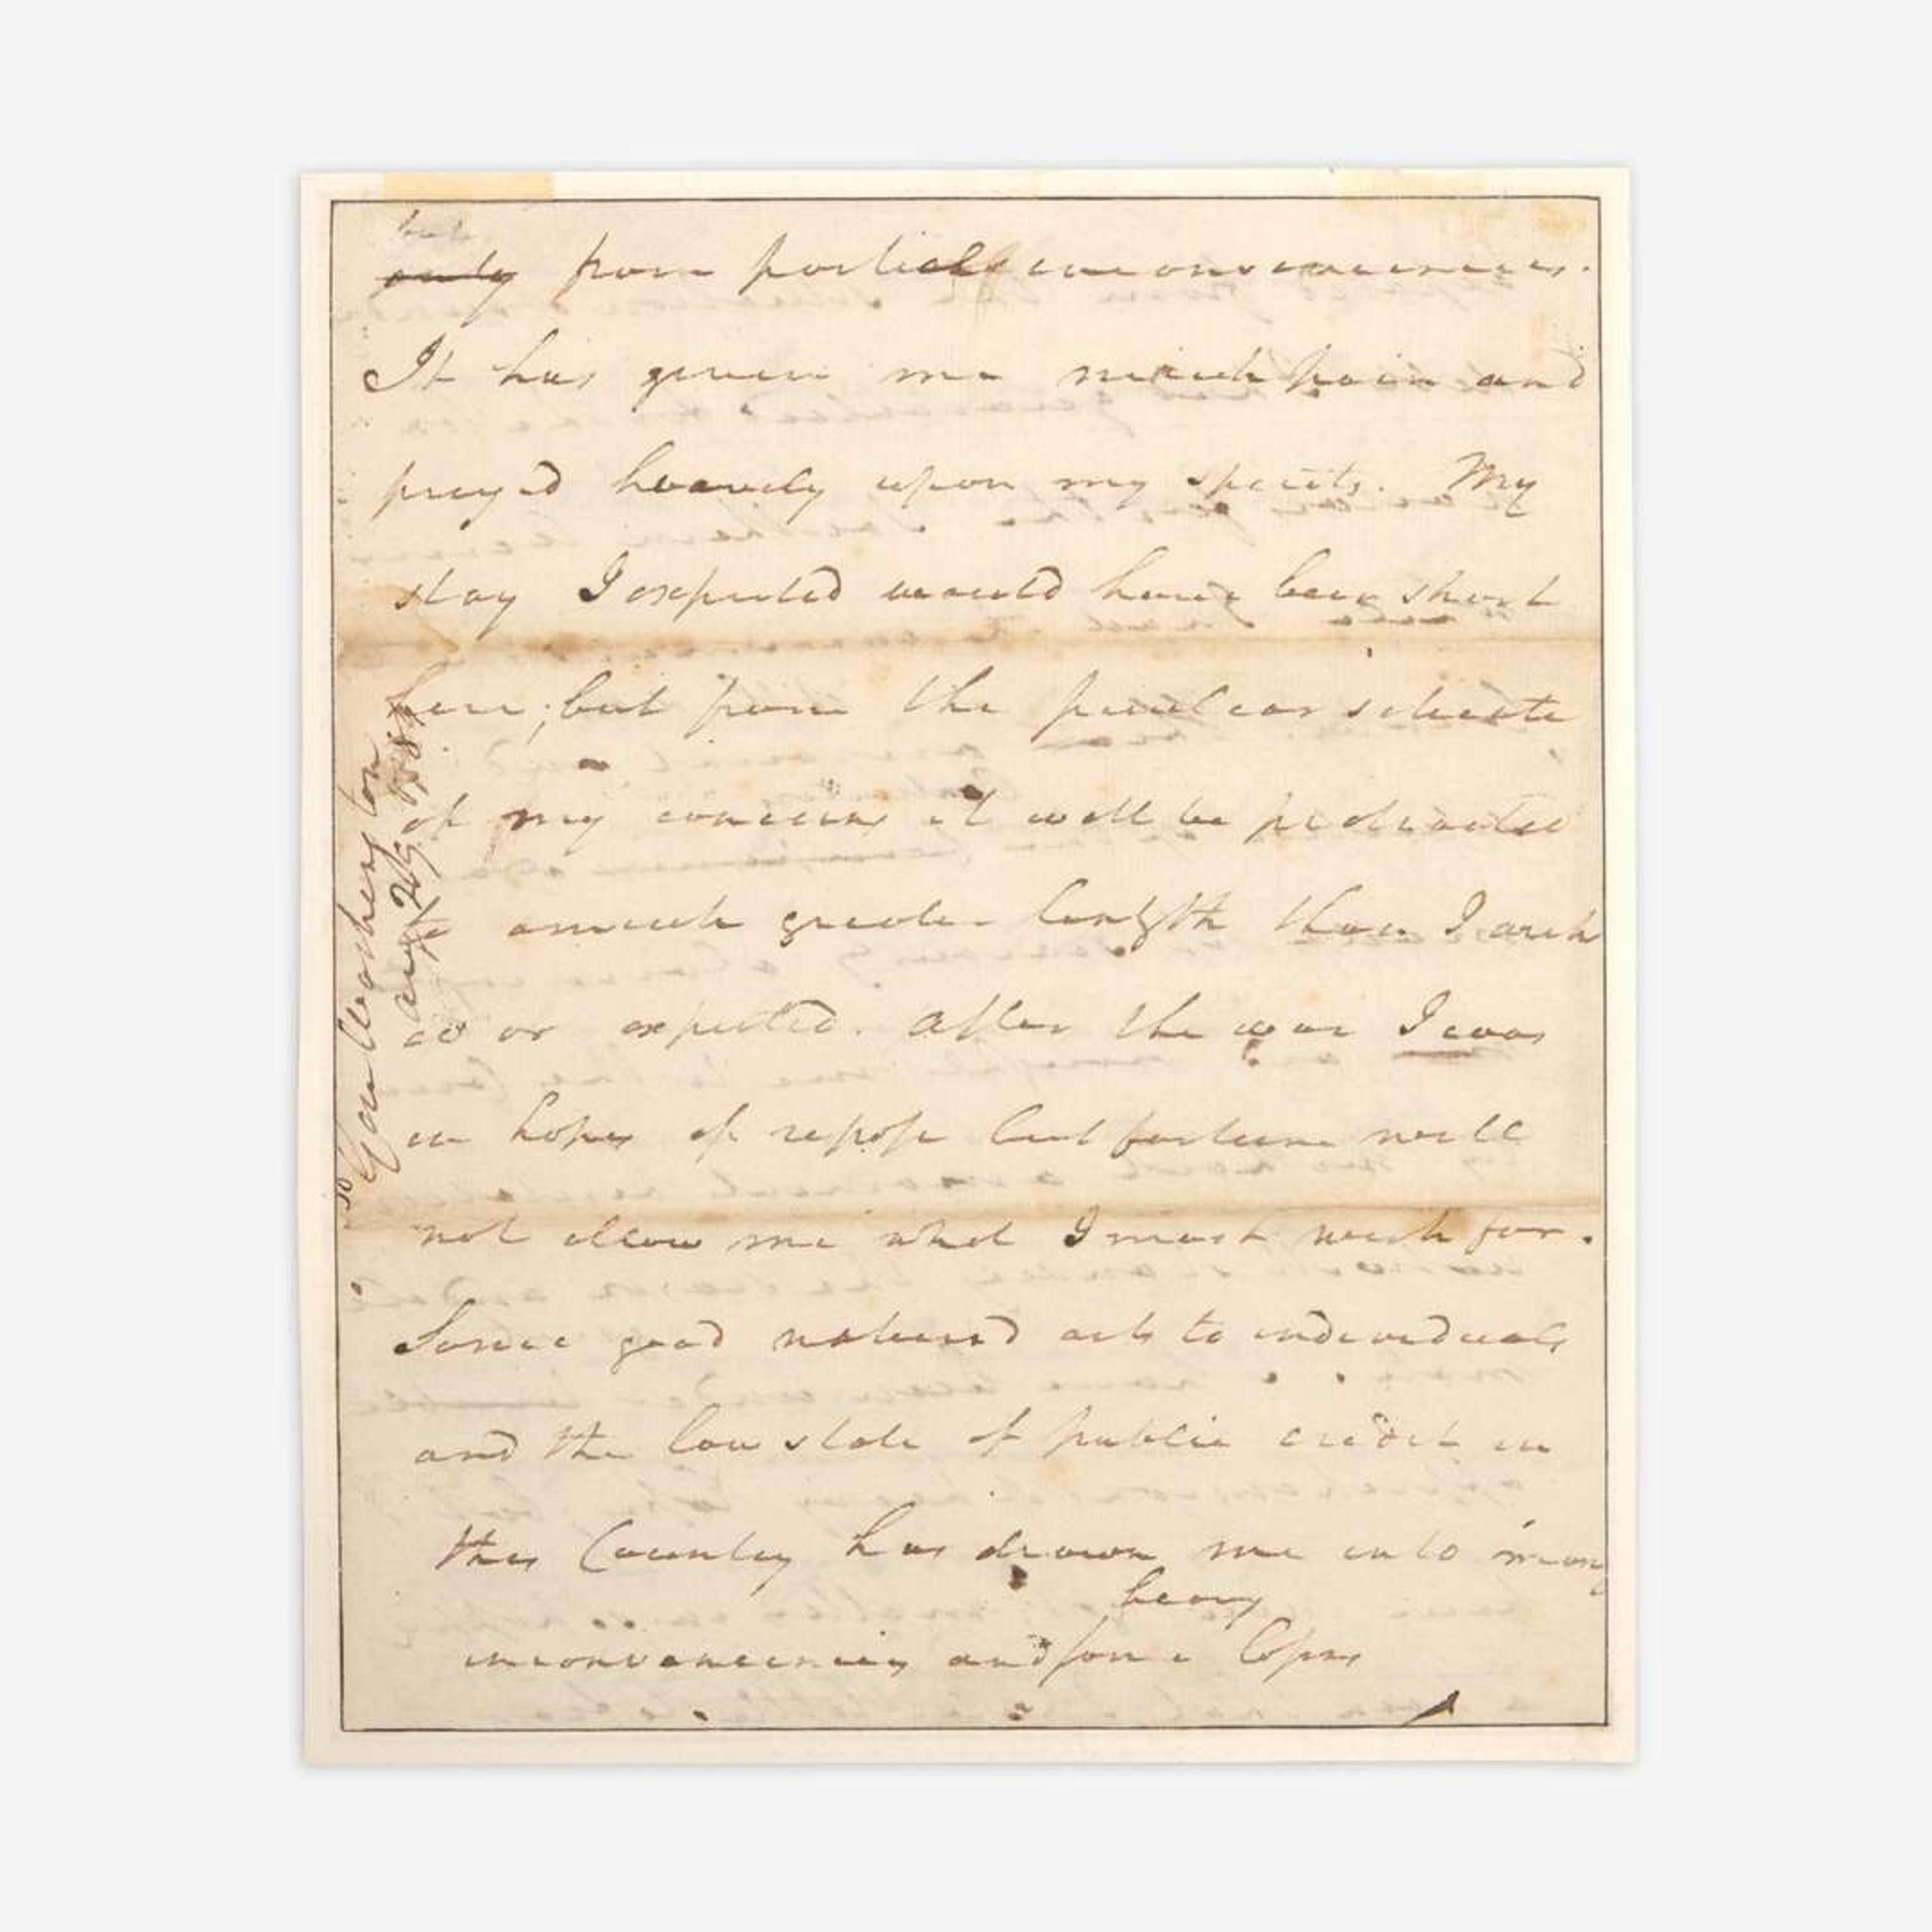 but
only from partial inconveniencies.
It has given me much pain and
preyed heavily upon my spirits. My
stay I expected would have been short
here; but from the peculiar situate
of my concerns it will be protracted
to a much greater length than I wish
ed or expected. After the war I was
in hopes of repose but fortune will
not allow me what I most wish for.
Some good natured acts to individuals
and the low state of public credit in
this Country has drawn me into many
heavy
inconveniencies and some
To Gen Washington
Augt 29th